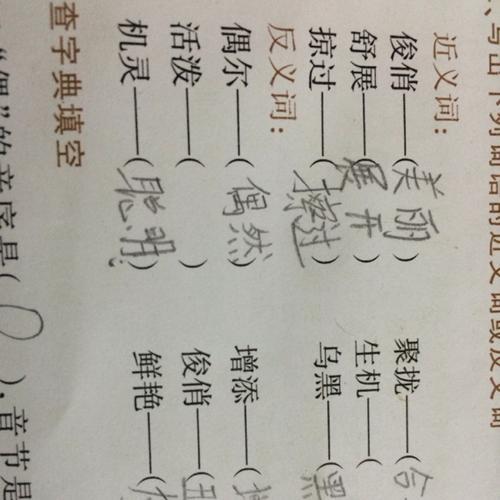 写出下列词语的近义词或反义词
近义词:
俊俏——(美丽) 聚拢——(合
舒展——(展开) 生机——(
掠过——(擦过) 乌黑——(黑
反义词:
偶尔——(偶然) 增添——(
活泼——( ) 俊俏——(丑
机灵——(聪明) 鲜艳——(
查字典填空
“偶”的音序是(O),音节是